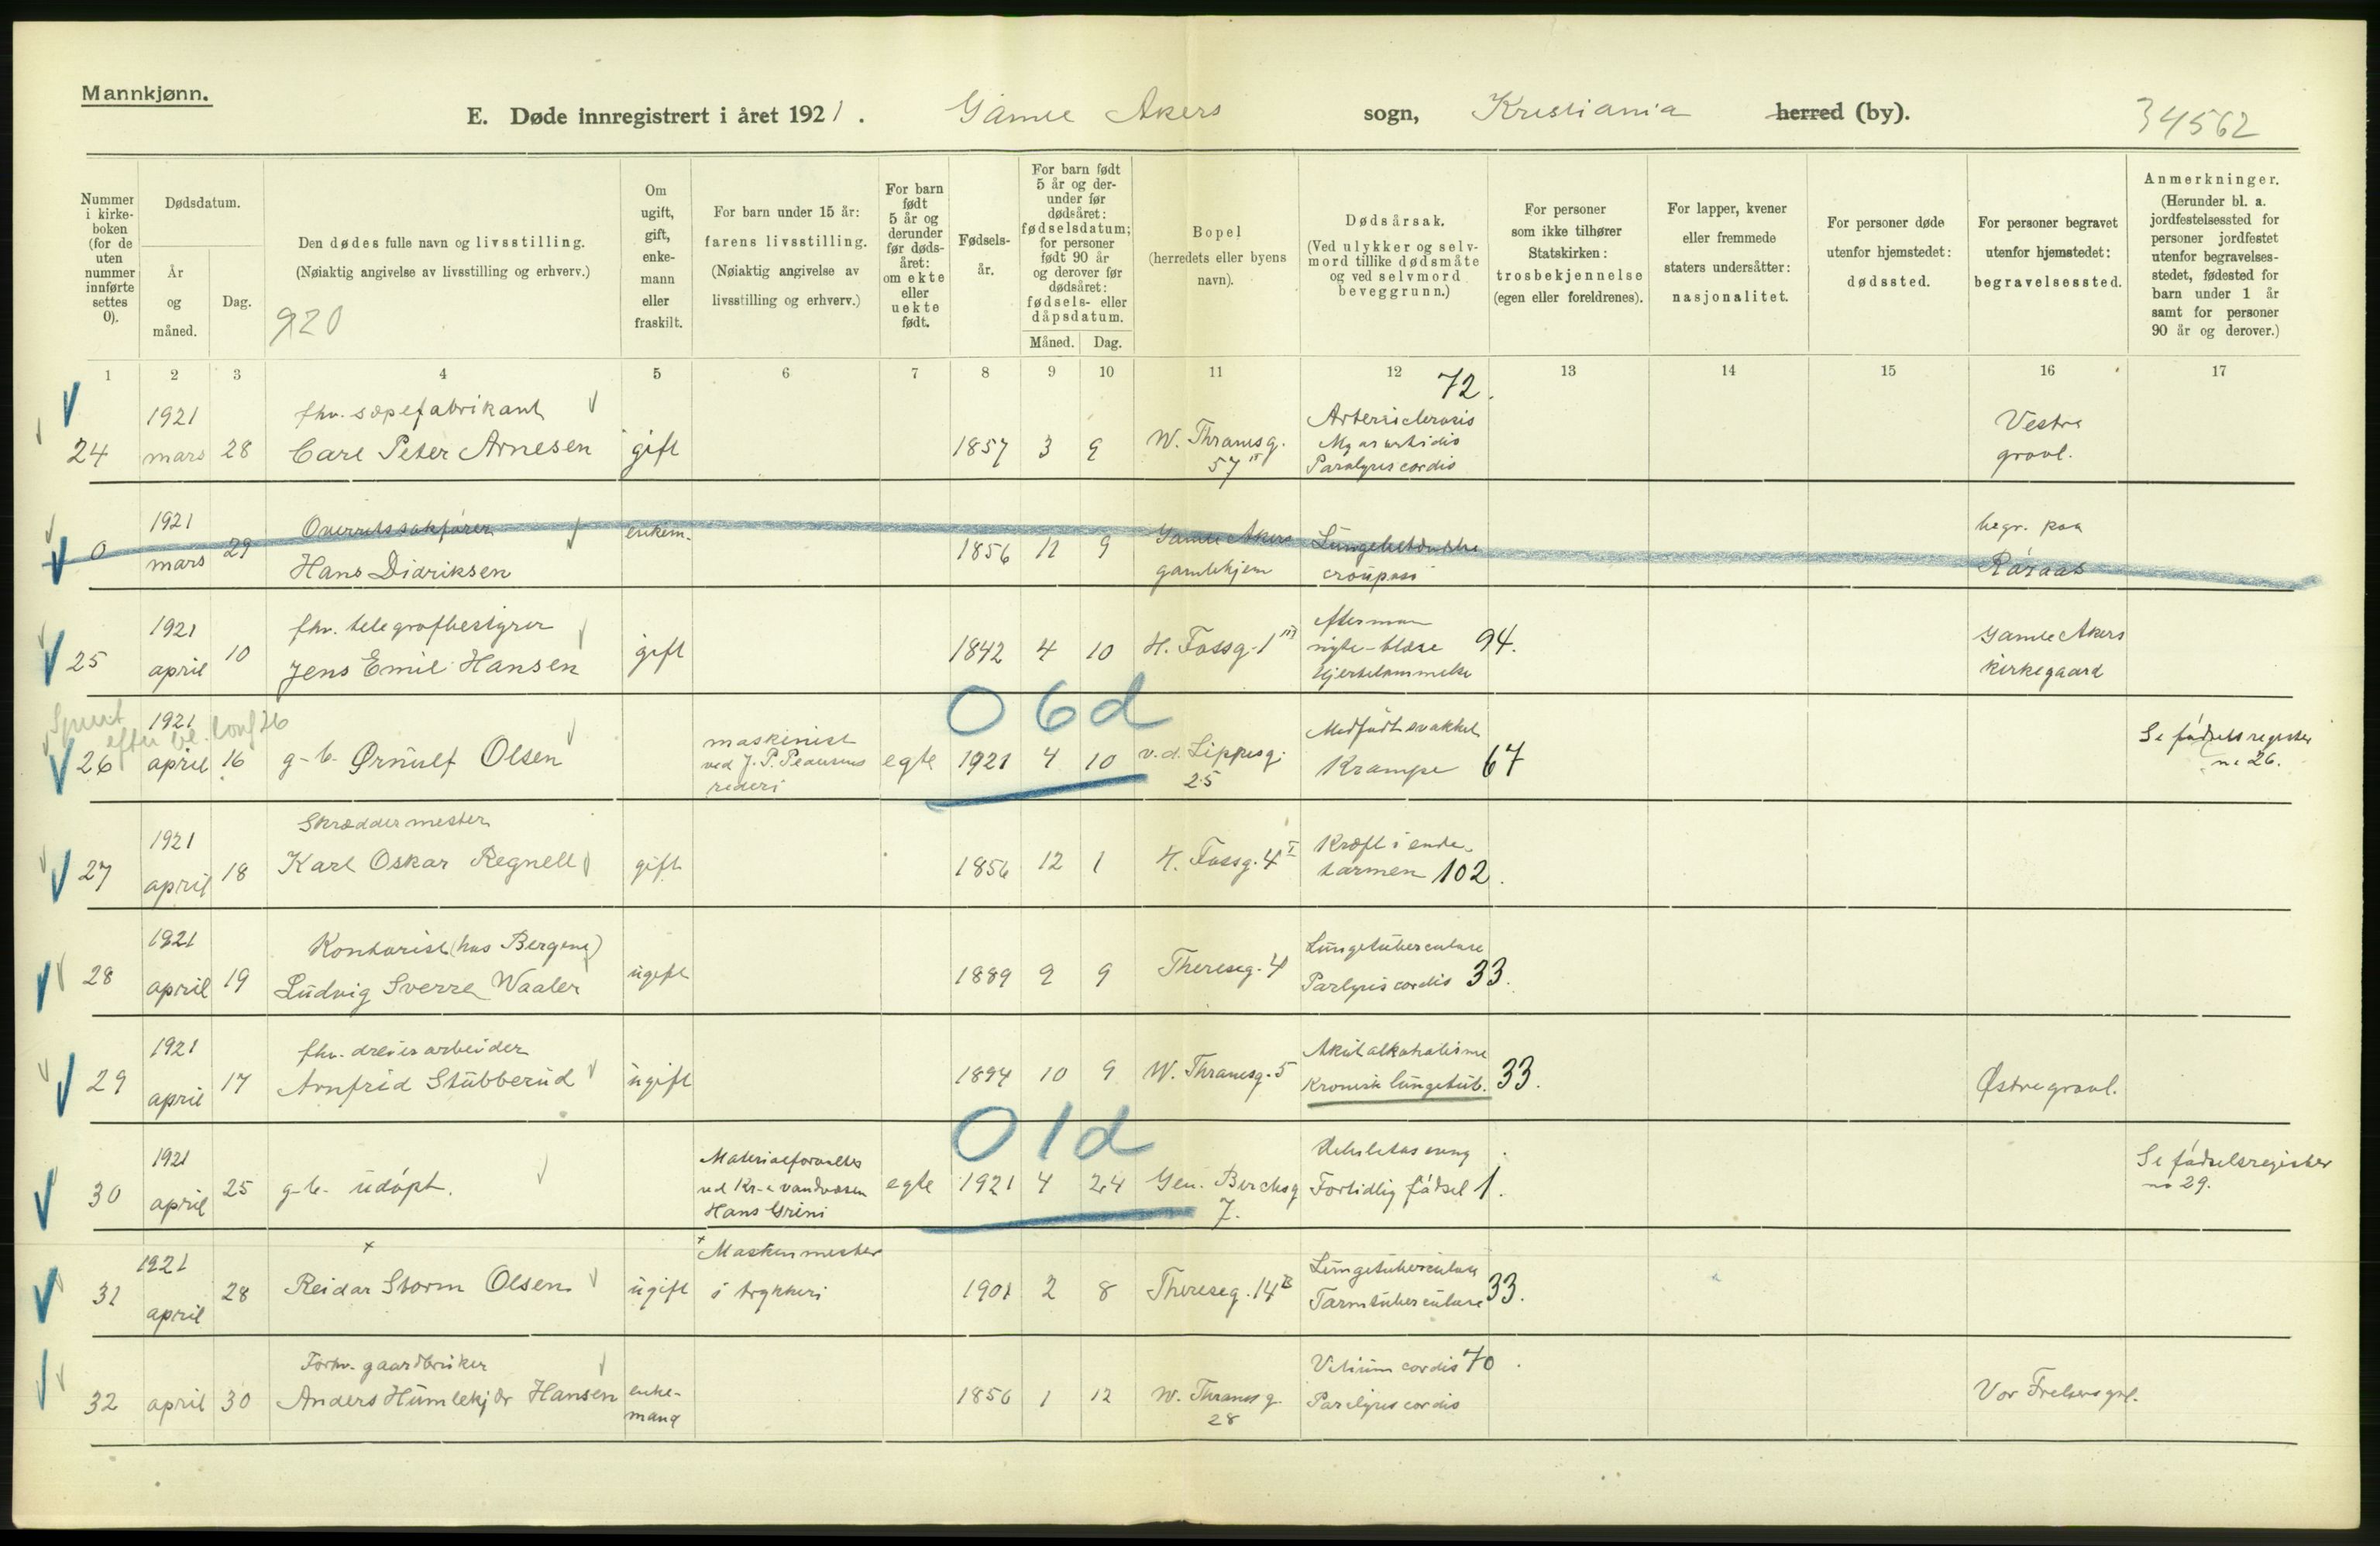 Mannkjønn.
E. Døde innregistrert i året 1921. Gamle Akers sogn, Kristiania herred (by). 34562
Nummer i kirke-boken (for de uten nummer innførte settes 0).
Dødsdatum.
År og måned.
Dag.
Den dødes fulle navn og livsstilling.
(Nøiaktig angivelse av livsstilling og erhverv.)
920
Om ugift, gift, enke-mann eller fraskilt.
For barn under 15 år: farens livsstilling.
(Nøiaktig angivelse av livsstilling og erhverv.)
For barn født 5 år og derunder før døds-året: om ekte eller uekte født.
Fødsels-år.
For barn født 5 år og der-under før dødsåret: fødselsdatum; for personer født 90 år og derover før dødsåret: fødsels- eller dåpsdatum.
Måned. Dag.
Bopel
(herredets eller byens navn).
Dødsårsak.
(Ved ulykker og selv-mord tillike dødsmåte og ved selvmord beveggrunn.)
For personer som ikke tilhører Statskirken: trosbekjennelse (egen eller foreldrenes).
For lapper, kvener eller fremmede staters undersåtter: nasjonalitet.
For personer døde utenfor hjemstedet: dødssted.
For personer begravet utenfor hjemstedet: begravelsessted.
Anmerkninger.
(Herunder bl. a. jordfestelsessted for personer jordfestet utenfor begravelses-stedet, fødested for barn under 1 år samt for personer 90 år og derover.)
1 2 3 4 5 6 7 8 9 10 11 12 13 14 15 16 17
72.
1921 fhv. sæpefabrikant Arteriosclerosis Vestre
24 mars 28 Carl Peter Arnesen gift 1857 3 9 W. Thranesg. Myocarditis gravl.
57 IV Paralysis cordis
1921 Overretssakfører enkem. Gamle Akers Lungebetændelse begr. paa
0 mars 29 Hans Didriksen 1856 12 9 gamlehjem croupøs Røraas
1921 fhv. telegrafbestyrer Gamle Akers
25 april 10 Jens Emil Hansen gift 1842 4 10 H. Fossg. 1 III nyre-blære 94. kirkegaard
Hjertelammelse
06d
1921 maskinist Medfødt svakhet Se fødselsregister
26 april 16 g-b. Ørnulf Olsen ved J. P. rederi egte 1921 4 10 v.d. Lippesg. 25 Krampe 67 no 26.
1921 Skræddermester Kræft i ende-
27 april 18 Karl Oskar Regnell gift 1856 12 1 H. Fossg. 4 I tarmen 102.
1921 Kontorist (hos Bergene) Lungetuberculose
28 april 19 Ludvig Sverre Waaler ugift 1889 9 9 Thereseg. 4 Parlysis cordis 33.
1921 fhv. dreierarbeider Akut alkoholisme
29 april 17 Arnfrid Stubberud ugift 1894 10 9 W. Thranesg. 5 Kronisk lungetub. 33. Østre gravl.
01d
1921 Materialforvalter Se fødselsregister
30 april 25 g-b. udøpt. ved Kr-a vandvæsen Hans Grini egte 1921 4 24 Gen. Birchsg 7. Fortidlig fødsel 1. no 29.
1921 + + Maskinmester Lungetuberculose
31 april 28 Reidar Storm Olsen ugift i trykkeri 1901 2 8 Thereseg. 14B Tarmtuberculose 33.
Forhv. gaardbruker Vitium cordis 70.
32 april 30 Anders Humlekjær Hansen enke-mand 1850 1 12 W. Thranesg. 28 Paralysis cordis Vor Frelsers grl.